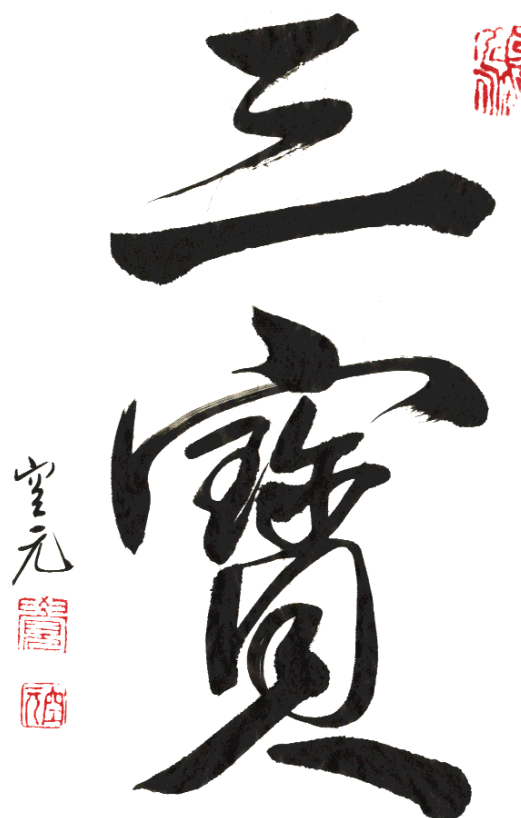 三寶
空元